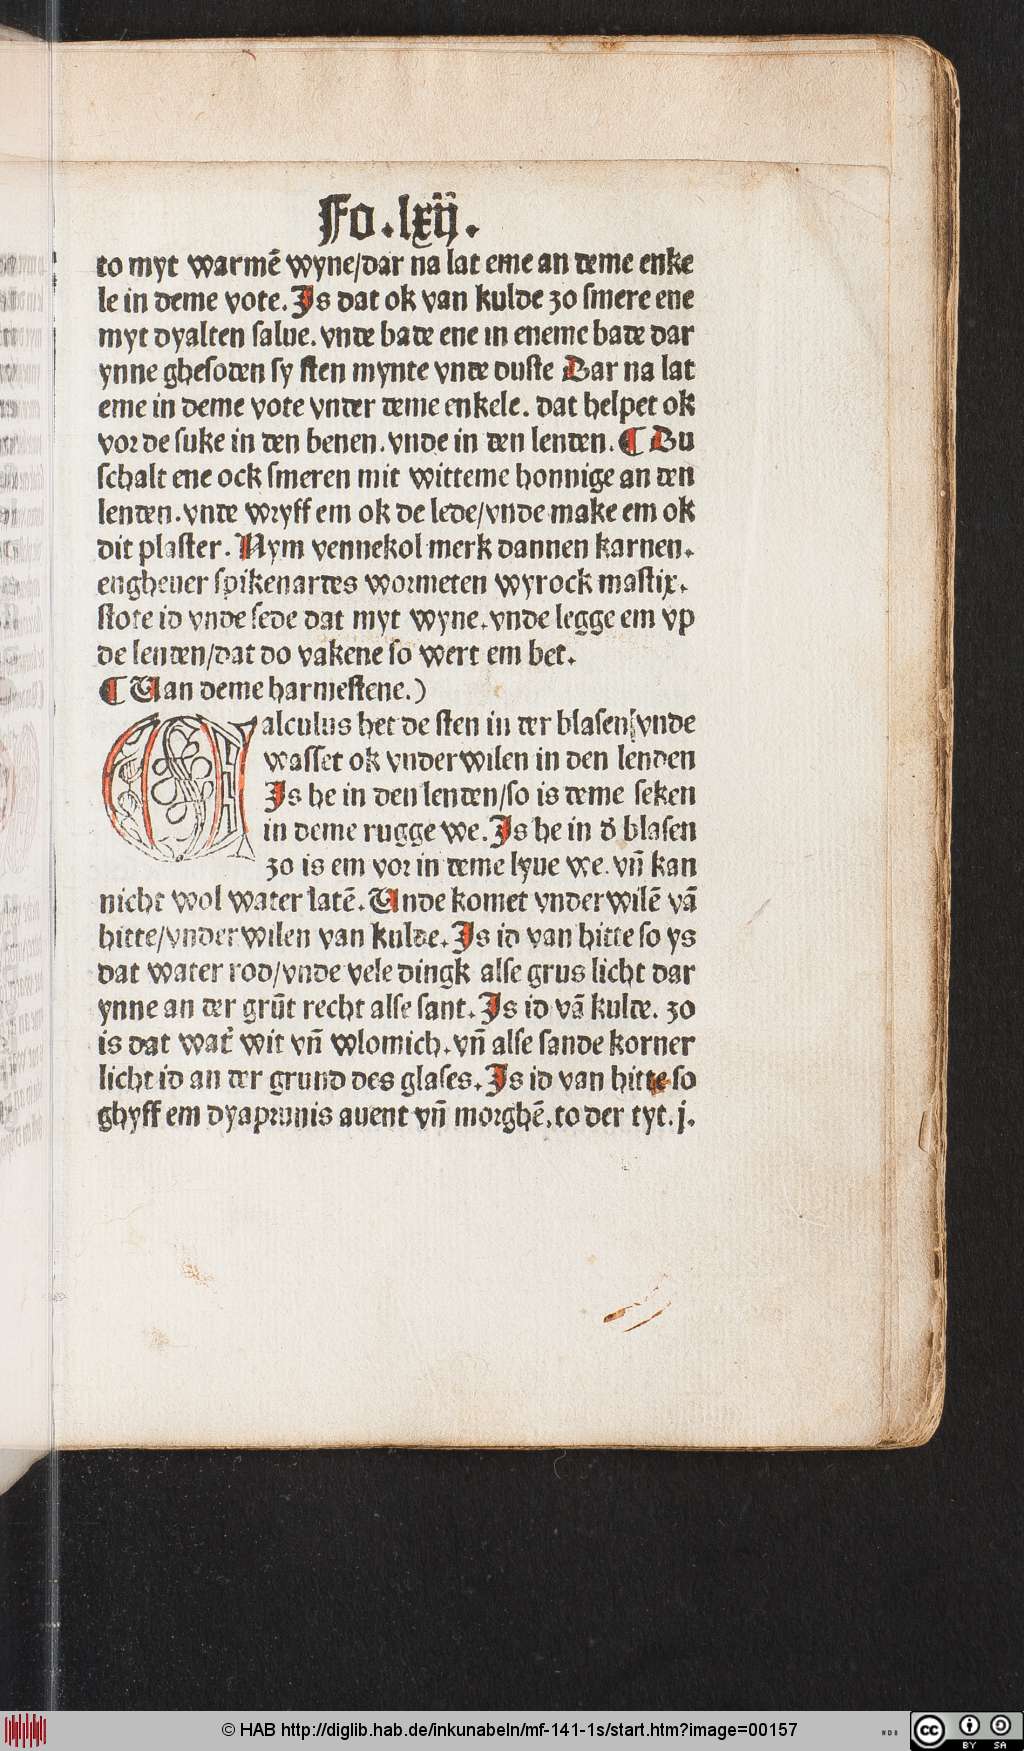 Fo.lxij.
to myt warmē wyne/dar na lat eme an deme enke
le in deme vote. Is dat ok van kulde zo smere ene
myt dyalten salue. vnde bade ene in eneme bade dar
ynne ghesoden sy sten mynte vnde duste Dar na lat
eme in deme vote vnder deme enkele. dat helpet ok
vor de suke in den benen. vnde in den lenden. ¶ Du
schalt ene ock smeren mit witteme honnige an den
lenden. vnde wryff em ok de lede/vnde make em ok
dit plaster. Nym vennekol merk dannen karnen.
engheuer spikenardes wormeten wyrock mastix.
stote id vnde sede dat myt wyne. vnde legge em vp
de lenden/dat do vakene so wert em bet.
¶ Van deme harmestene.)
Calculus het de sten in der blasen/vnde
wasset ok vnderwilen in den lenden
Is he in den lenden/so is deme seken
in deme rugge we. Is he in d̓ blasen
zo is em vor in deme lyue we. vn̄ kan
nicht wol water latē. Vnde komet vnderwilē vā
hitte/vnderwilen van kulde. Is id van hitte so ys
dat water rod/vnde vele dingk alse grus licht dar
ynne an der grūt recht alse sant. Is id vā kulde. zo
is dat wat̓ wit vn̄ wlomich. vn̄ alse sande korner
licht id an der grund des glases. Is id van hitte so
ghyff em dyaprunis auent vn̄ morghē. to der tyt. j.
© HAB http://diglib.hab.de/inkunabeln/mf-141-1s/start.htm?image=00157
WDB
cc BY SA